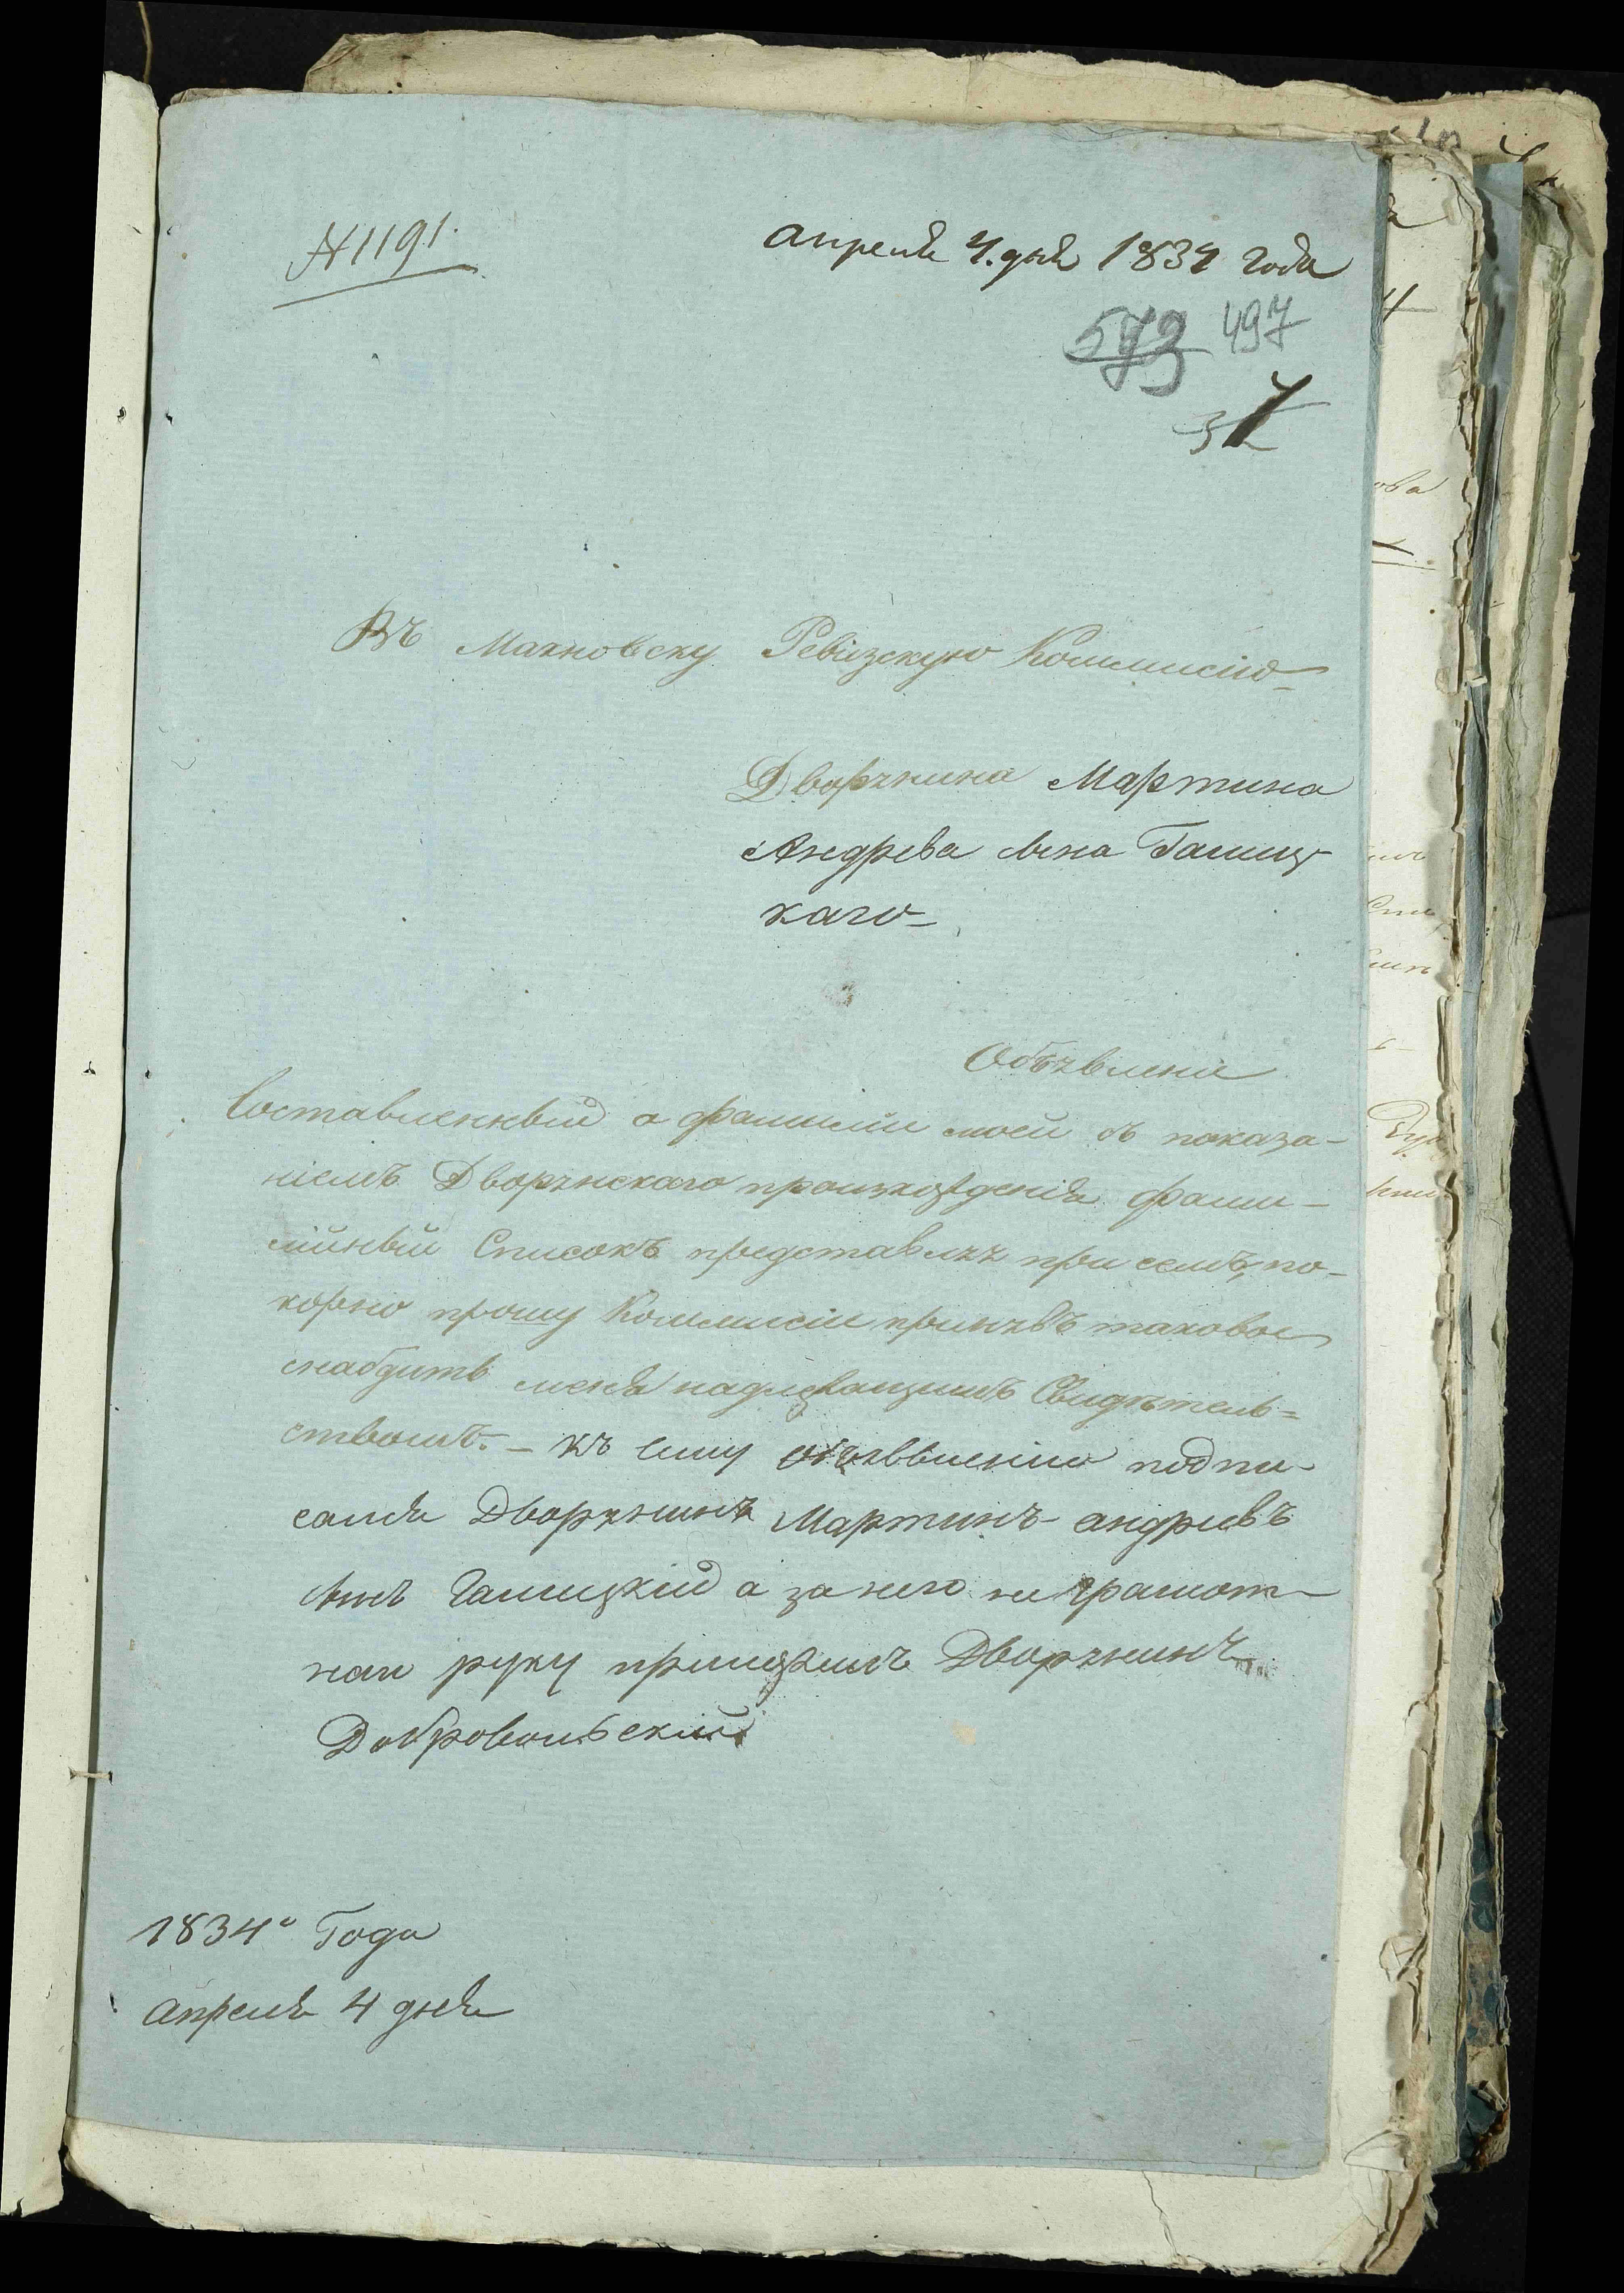 № 1191.
апреля 4. дня 1834 года
573 497
Въ Махновску Ревизскую Коммисію
Дворянина Мартина
Андрева сына Галиц
каго
Объявление
Составленный о фамиліи моей съ показа-
ніемъ Дворянскаго произхождения фами-
лійный Списокъ представляя при семъ, по-
корно прошу Коммисіи принявъ таковое
снабдить меня надлежащимъ Свидѣтель=
ствомъ. – къ сему объявленію подпи-
сался Дворянинъ Мартинъ андриевъ
сынъ Галицкій а за него не грамот-
наи руку приложилъ Дворянинъ
Добровольский
1834º Года
апреля 4 дня